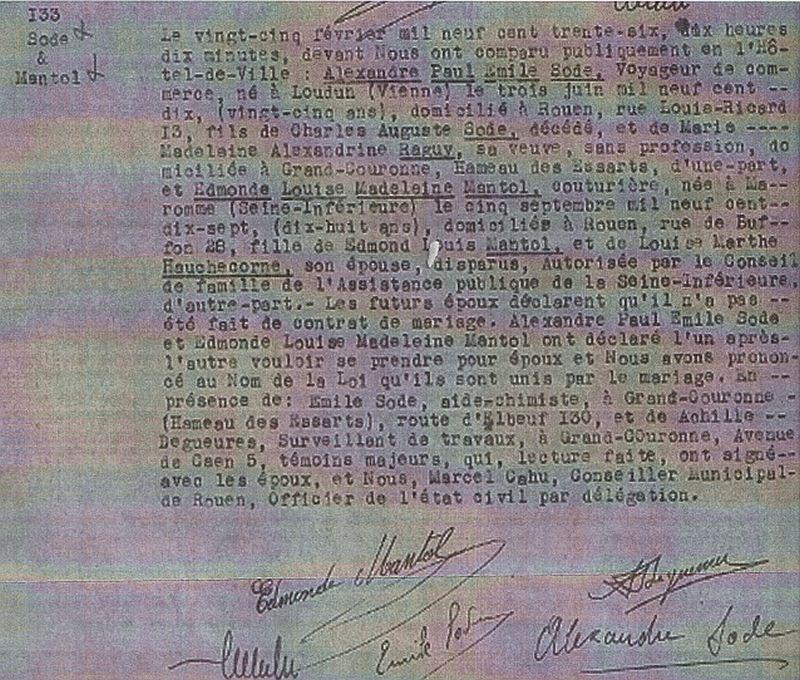 I33
Sode
&
Mantol
Le vingt-cinq février mil neuf cent trente-six, dix heures
dix minutes, devant Nous ont comparu publiquement en l'Hô-
tel-de-Ville : Alexandre Paul Emile Sode, Voyageur de com-
merce, né à Loudun (Vienne) le trois juin mil neuf cent --
dix, (vingt-cinq ans), domicilié à Rouen, rue Louis-Ricard
I3, fils de Charles Auguste Sode, décédé, et de Marie ----
Madelaine Alexandrine Raguy, sa veuve, sans profession, do
miciliée à Grand-Couronne, Hameau des Essarts, d'une-part,
et Edmonde Louise Madeleine Mantol, couturière, née à Ma-
romme (Seine-Inférieure) le cinq septembre mil neuf cent--
dix-sept, (dix-huit ans), domiciliés à Rouen, rue de Buf-
fon 28, fille de Edmond Louis Mantol, et de Louise Marthe
Hauchecorne, son épouse, disparus, Autorisée par le Conseil
de famille de l'Assistance publique de la Seine-Inférieure,
d'autre-part.- Les futurs époux déclarent qu'il n'a pas --
été fait de contrat de mariage. Alexandre Paul Emile Sode
et Edmonde Louise Madeleine Mantol ont déclaré l'un après-
l'autre vouloir se prendre pour époux et Nous avons pronon-
cé au Nom de la Loi qu'ils sont unis par le mariage. En --
présence de: Emile Sode, aide-chimiste, à Grand-Couronne -
(Hameau des Essarts), route d'Elbeuf I30, et de Achille --
Degueures, Surveillant de travaux, à Grand-COuronne, Avenue
de Caen 5, témoins majeurs, qui, lecture faite, ont signé--
avec les époux, et Nous, Marcel Cahu, Conseiller Municipal-
de Rouen, Officier de l'état civil par délégation.
Edmonde Mantol
Emile Sode
Alexandre Sode